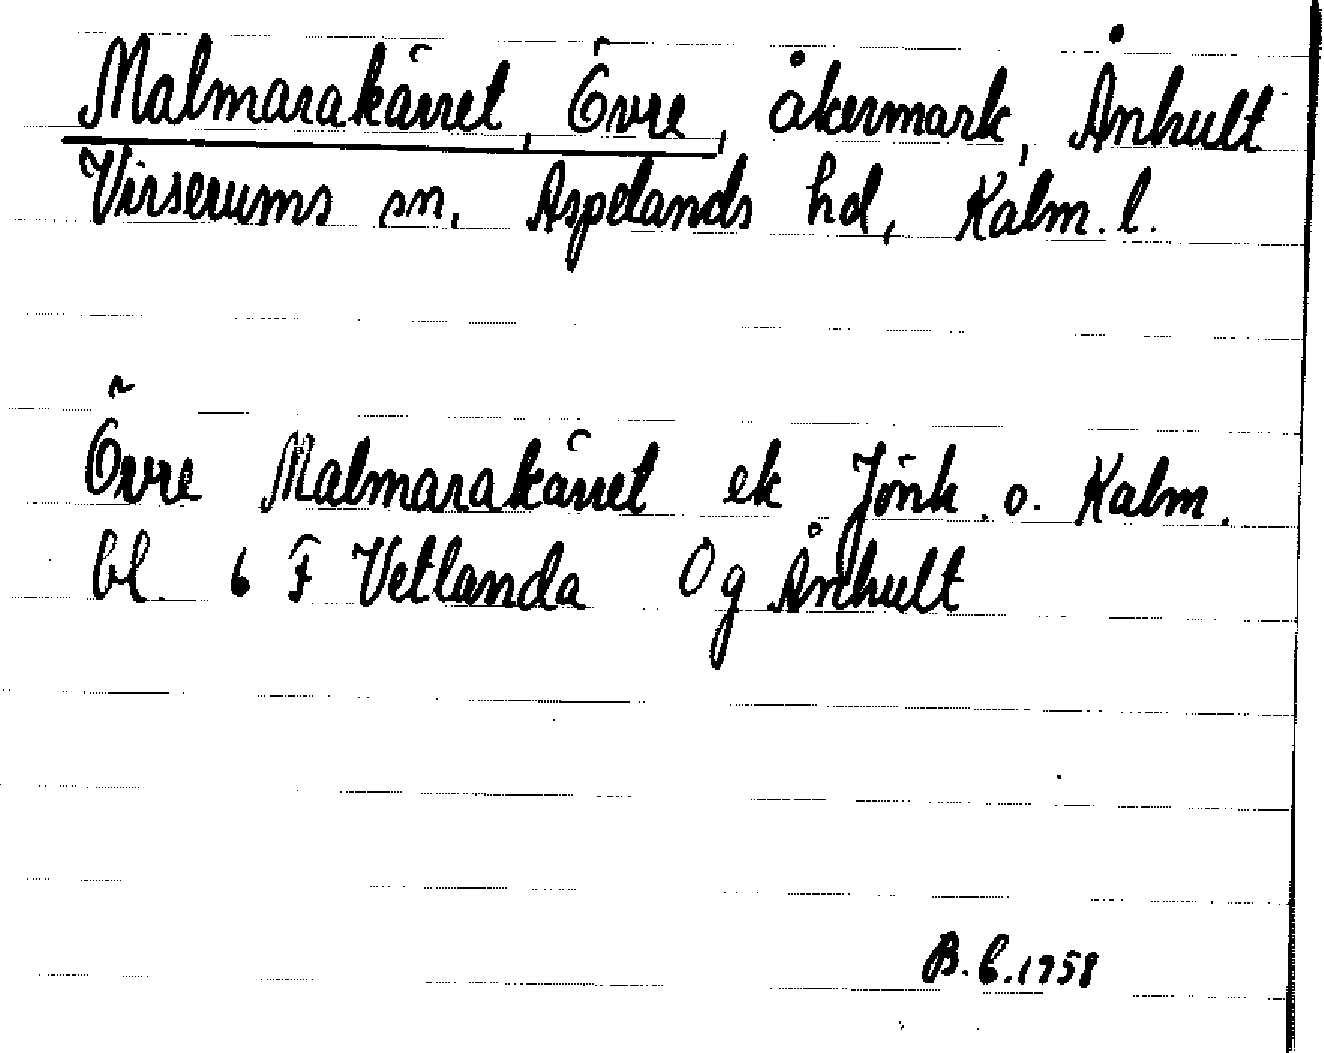 Malmarakärret, Övre, åkermark, Ånhult
Virserums sn. Aspelands hd, Kalm. l.
Övre Malmarakärret ek Jönk. o. Kalm.
bl. 6 F Vetlanda Og Ånhult
B. C. 1958